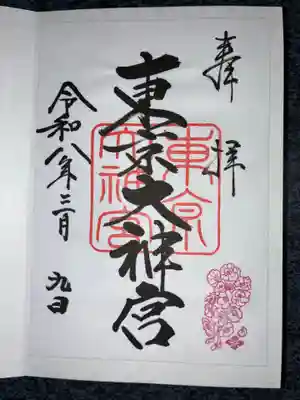 奉拝
東京大神宮
東京大神宮
令和八年三月九日